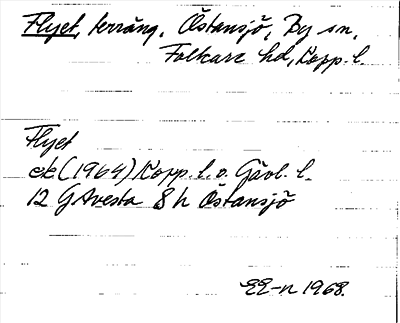 Flyet, terräng, Östansjö, By sn,
Folkare hd, Kopp. l.
Flyet
ek (1964) Kopp. l. o. Gävl. l.
12 G Avesta 8 h Östansjö
EE-n 1968.